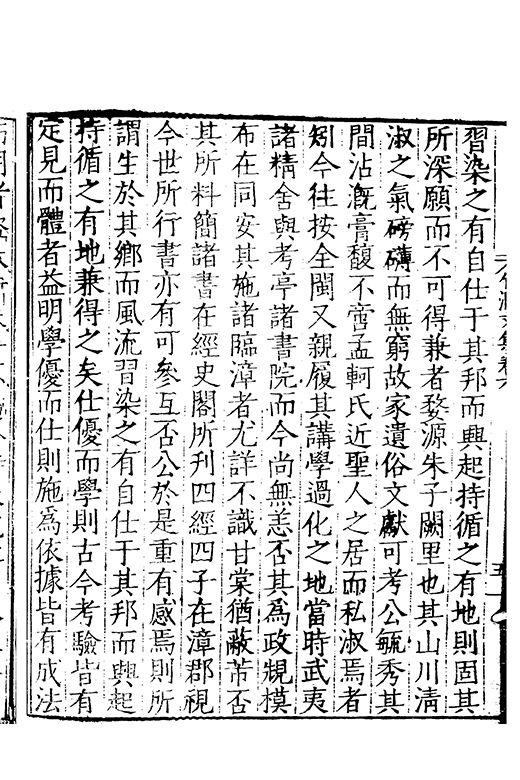 習染之有自仕于其邦而興起持循之有地則固其
所深願而不可得兼者婺源朱子闕里也其山川清
淑之氣磅礴而無窮故家遺俗文獻可考公毓秀其
間沾漑膏馥不啻孟軻氏近聖人之居而私淑焉者
矧今往按全閩又親履其講學過化之地當時武夷
諸精舍與考亭諸書院而今尚無恙否其為政規模
布在同安其施諸臨漳者尤詳不識甘棠猶蔽芾否
其所料簡諸書在經史閣所刊四經四子在漳郡視
今世所行書亦有可參互否公於是重有感焉則所
謂生於其鄉而風流習染之有自仕于其邦而興起
持循之有地兼得之矣仕優而學則古今考驗皆有
定見而體者益明學優而仕則施為依據皆有成法